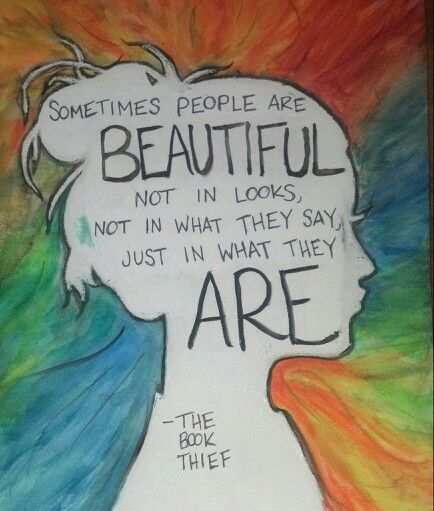 SOMETIMES PEOPLE ARE
BEAUTIFUL
NOT IN LOOKS,
NOT IN WHAT THEY SAY,
JUST IN WHAT THEY
ARE
-THE
BOOK
THIEF